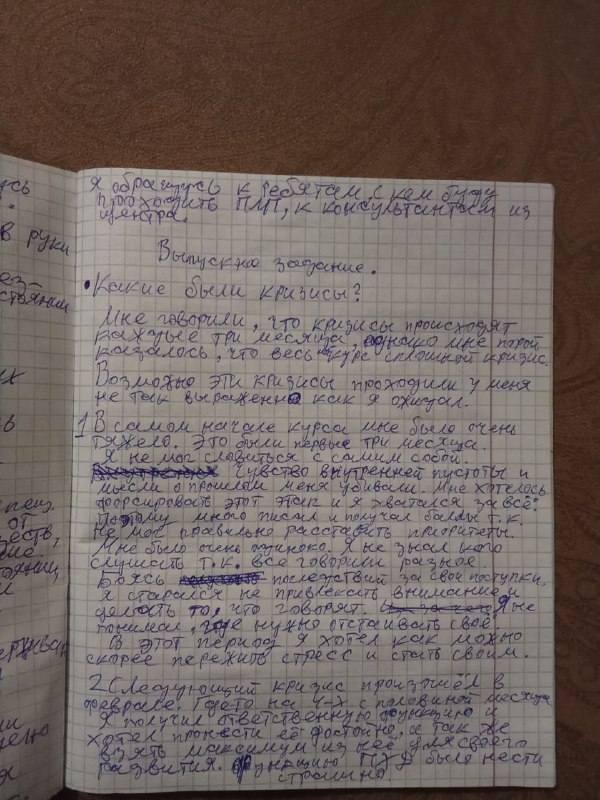 Я обращусь к ребятам с кем буду
проходить ПЛП, к консультантам из
центра.
Выпускно задание.
• Какие были кризисы?
Мне говорили, что кризисы происходят
каждые три месяца, однако мне порой
казалось, что весь курс сплошной кризис.
Возможно эти кризисы проходили у меня
не так выраженно как я ожидал.
1 В самом начале курса мне было очень
тяжело. Это были первые три месяца.
Я не мог сладиться с самим собой.
Чувство внутренней пустоты и
мысли о прошлом меня убивали. Мне хотелось
форсировать этот этап и я хватался за всё.
Поэтому много писал и получал баллы т.к.
не мог правильно расставить приоритеты.
Мне было очень одиноко. Я не знал кого
слушать т.к. все говорили разное.
Боясь последствий за свои поступки,
я старался не привлекать внимание и
делать то, что говорят. Я не
понимал, где нужно отстаивать своё.
В этот период я хотел как можно
скорее пережить стресс и стать своим.
2 Следующий кризис произошёл в
феврале. Где-то на 4-х с половиной месяца
Я получил ответственную функцию и
хотел пронести её достойно, а так же
взять максимум из неё для своего
развития. функцию ПХД было нести
страшно
усь
в руки
ез-
стоянии
их
ь
спец.
от
еств,
ие
и
ии
целю
я